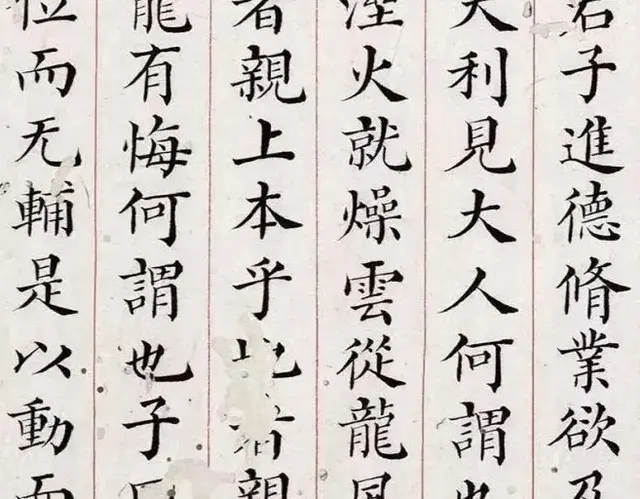 君子進德脩業欲及
天利見大人何謂也
溼火就燥雲從龍風
者親上本乎地者親
龍有悔何謂也子曰
位而无輔是以動而